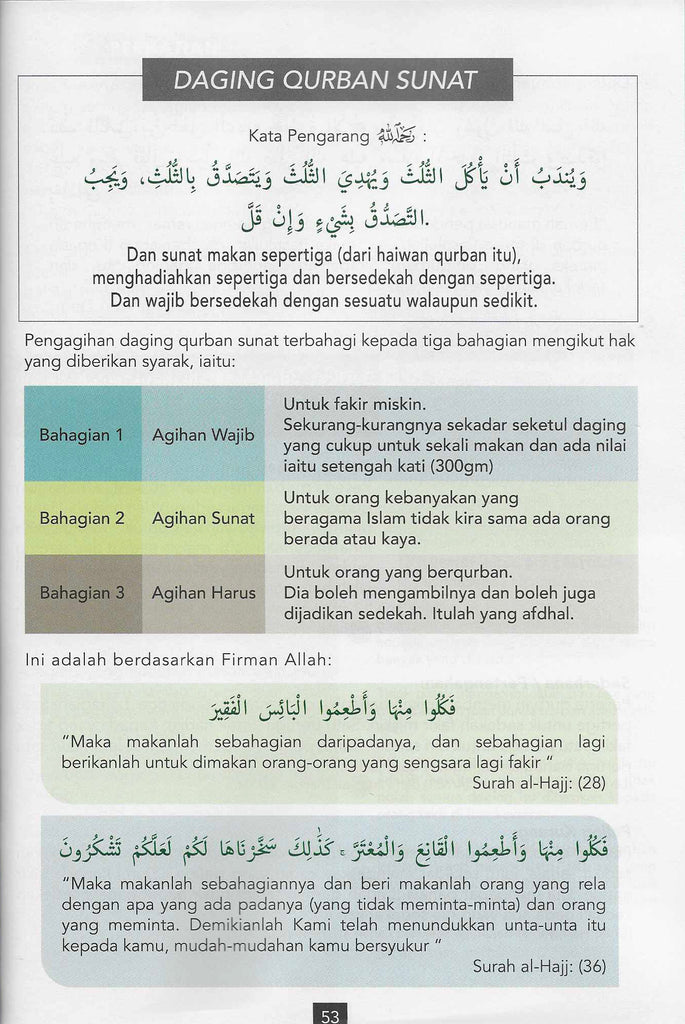 DAGING QURBAN SUNAT
Kata Pengarang رحمه الله :
وَيُنْدَبُ أَنْ يَأْكُلَ الثُّلُثَ وَيُهْدِيَ الثُّلُثَ وَيَتَصَدَّقُ بِالثُّلُثِ، وَيَجِبُ
التَّصَدُّقُ بِشَيْءٍ وَإِنْ قَلَّ.
Dan sunat makan sepertiga (dari haiwan qurban itu),
menghadiahkan sepertiga dan bersedekah dengan sepertiga.
Dan wajib bersedekah dengan sesuatu walaupun sedikit.
Pengagihan daging qurban sunat terbahagi kepada tiga bahagian mengikut hak
yang diberikan syarak, iaitu:
Bahagian 1
Agihan Wajib
Untuk fakir miskin.
Sekurang-kurangnya sekadar seketul daging
yang cukup untuk sekali makan dan ada nilai
iaitu setengah kati (300gm)
Bahagian 2
Agihan Sunat
Untuk orang kebanyakan yang
beragama Islam tidak kira sama ada orang
berada atau kaya.
Bahagian 3
Agihan Harus
Untuk orang yang berqurban.
Dia boleh mengambilnya dan boleh juga
dijadikan sedekah. Itulah yang afdhal.
Ini adalah berdasarkan Firman Allah:
فَكُلُوا مِنْهَا وَأَطْعِمُوا الْبَائِسَ الْفَقِيرَ
“Maka makanlah sebahagian daripadanya, dan sebahagian lagi
berikanlah untuk dimakan orang-orang yang sengsara lagi fakir “
Surah al-Hajj: (28)
فَكُلُوا مِنْهَا وَأَطْعِمُوا الْقَانِعَ وَالْمُعْتَرَّ ۚ كَذَٰلِكَ سَخَّرْنَاهَا لَكُمْ لَعَلَّكُمْ تَشْكُرُونَ
“Maka makanlah sebahagiannya dan beri makanlah orang yang rela
dengan apa yang ada padanya (yang tidak meminta-minta) dan orang
yang meminta. Demikianlah Kami telah menundukkan unta-unta itu
kepada kamu, mudah-mudahan kamu bersyukur “
Surah al-Hajj: (36)
53